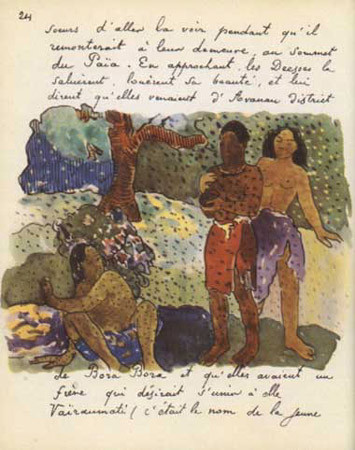 24
sœurs d'aller la voir pendant qu'il
remonterait à leur demeure, au sommet
du Païa. En approchant, les Déesses la
saluèrent, louèrent sa beauté, et lui
dirent qu'elles venaient d'Avanau district
de Bora Bora et qu'elles avaient un
frère qui désirait s'unir à elle
Vaïraümati (c'était le nom de la jeune